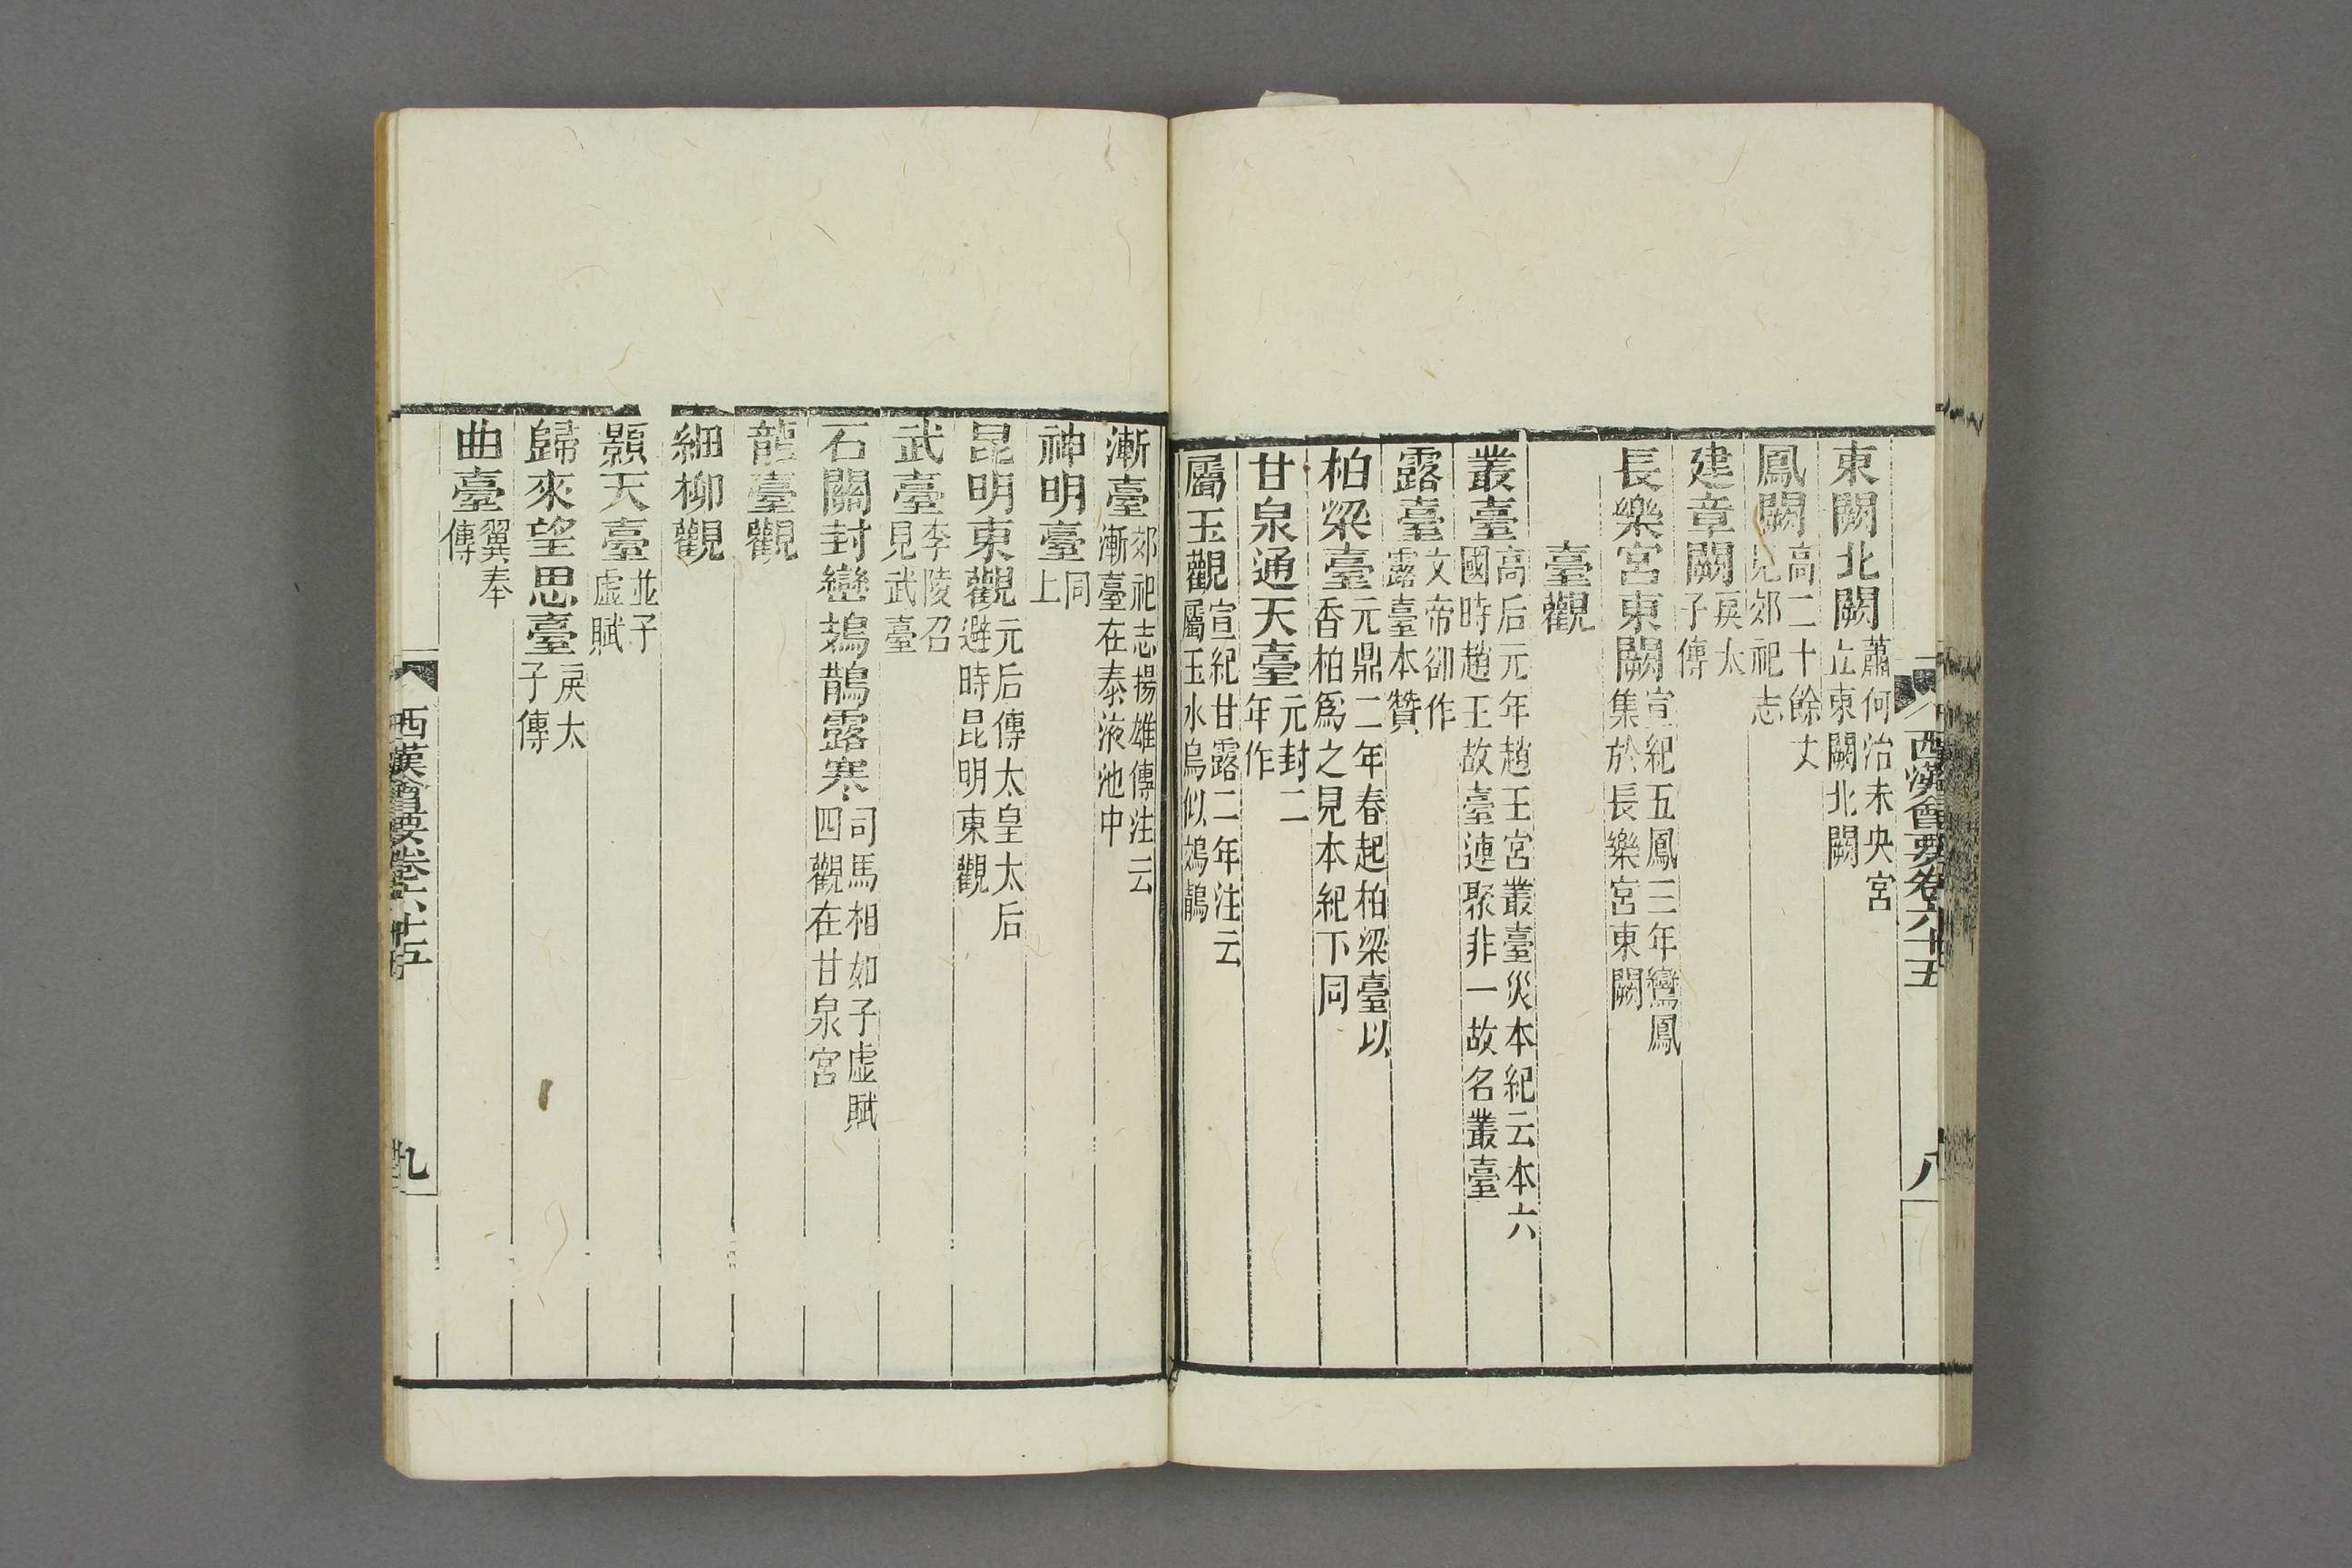 東闕北闕蕭何治未央宮立東闕北闕
鳳闕高二十餘丈見郊祀志
建章闕戾太子傳
長樂宮東闕宣紀五鳳三年鸞鳳集於長樂宮東闕
臺觀
叢臺高后元年趙王宮叢臺災本紀云本六國時趙王故臺連聚非一故名叢臺
露臺文帝卻作露臺本贊
柏梁臺元鼎二年春起柏梁臺以香柏爲之見本紀下同
甘泉通天臺元封二年作
屬玉觀宣紀甘露二年注云屬玉水鳥似鵁鶄
西漢會要卷六十五
八
漸臺郊祀志揚雄傳注云漸臺在泰液池中
神明臺同上
昆明東觀元后傳太皇太后避時昆明東觀
武臺李陵召見武臺
石關封巒鳷鵲露寒司馬相如子虛賦四觀在甘泉宮
龍臺觀
細柳觀
顥天臺並子虛賦
歸來望思臺戾太子傳
曲臺翼奉傳
西漢會要卷六十五
九